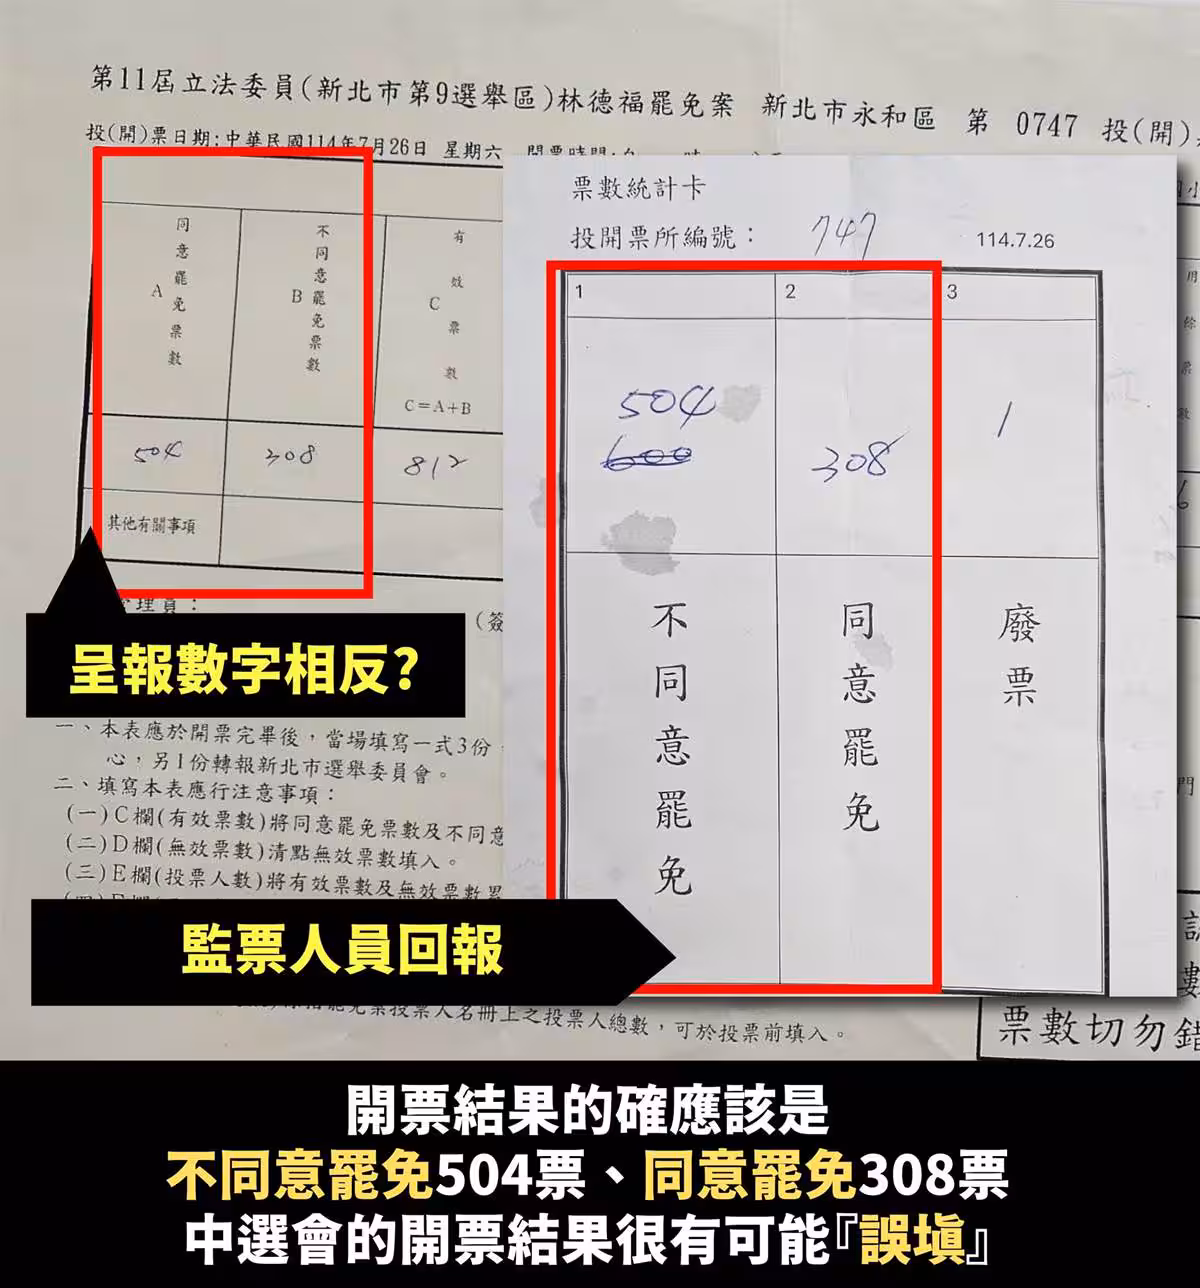 第11屆立法委員(新北市第9選舉區)林德福罷免案 新北市永和區 第 0747 投(開)
投(開)票日期:中華民國114年7月26日 星期六
同意罷免票數
A
不同意罷免票數
B
有效票數
C
C=A+B
504
308
812
其他有關事項
票數統計卡
投開票所編號：
747
114.7.26
1
2
3
504
600
308
1
不同意罷免
同意罷免
廢票
管理員：
(簽
呈報數字相反?
一、本表應於開票完畢後，當場填寫一式3份
心，另1份轉報新北市選舉委員會。
二、填寫本表應行注意事項：
(一)C欄(有效票數)將同意罷免票數及不同意
(二)D欄(無效票數)清點無效票數填入。
(三)E欄(投票人數)將有效票數及無效票數累
監票人員回報
罷免案投票人名冊上之投票人總數，可於投票前填入。
票數切勿錯
開票結果的確應該是
不同意罷免504票、同意罷免308票
中選會的開票結果很有可能『誤填』